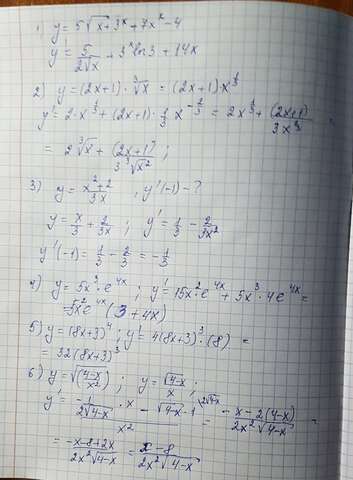 1) y = 5√x + 3^x + 7x² - 4
y = 5/(2√x) + 3^x ln 3 + 14x
2) y = (2x+1) · ∛x = (2x+1) · x^(1/3)
y' = 2·x^(1/3) + (2x+1) · 1/3 x^(-2/3) = 2x^(1/3) + (2x+1)/(3x^(2/3)) =
= 2∛x + (2x+1)/(3∛x²) ;
3) y = (x²+2)/(3x) , y'(-1) - ?
y = x/3 + 2/(3x) ; y' = 1/3 - 2/(3x²)
y'(-1) = 1/3 - 2/3 = -1/3
4) y = 5x³·e^(4x) ; y' = 15x²·e^(4x) + 5x³·4e^(4x) =
= 5x²e^(4x) (3 + 4x)
5) y = (8x+3)⁴ ; y' = 4(8x+3)³·(8) =
= 32(8x+3)³
6) y = √((4-x)/x²) ; y = √(4-x)/x ;
y' = (-1/(2√(4-x)) · x - √(4-x) · 1)/x² = (-x - 2(4-x))/(2x²√(4-x)) =
= (-x-8+2x)/(2x²√(4-x)) = (x-8)/(2x²√(4-x))